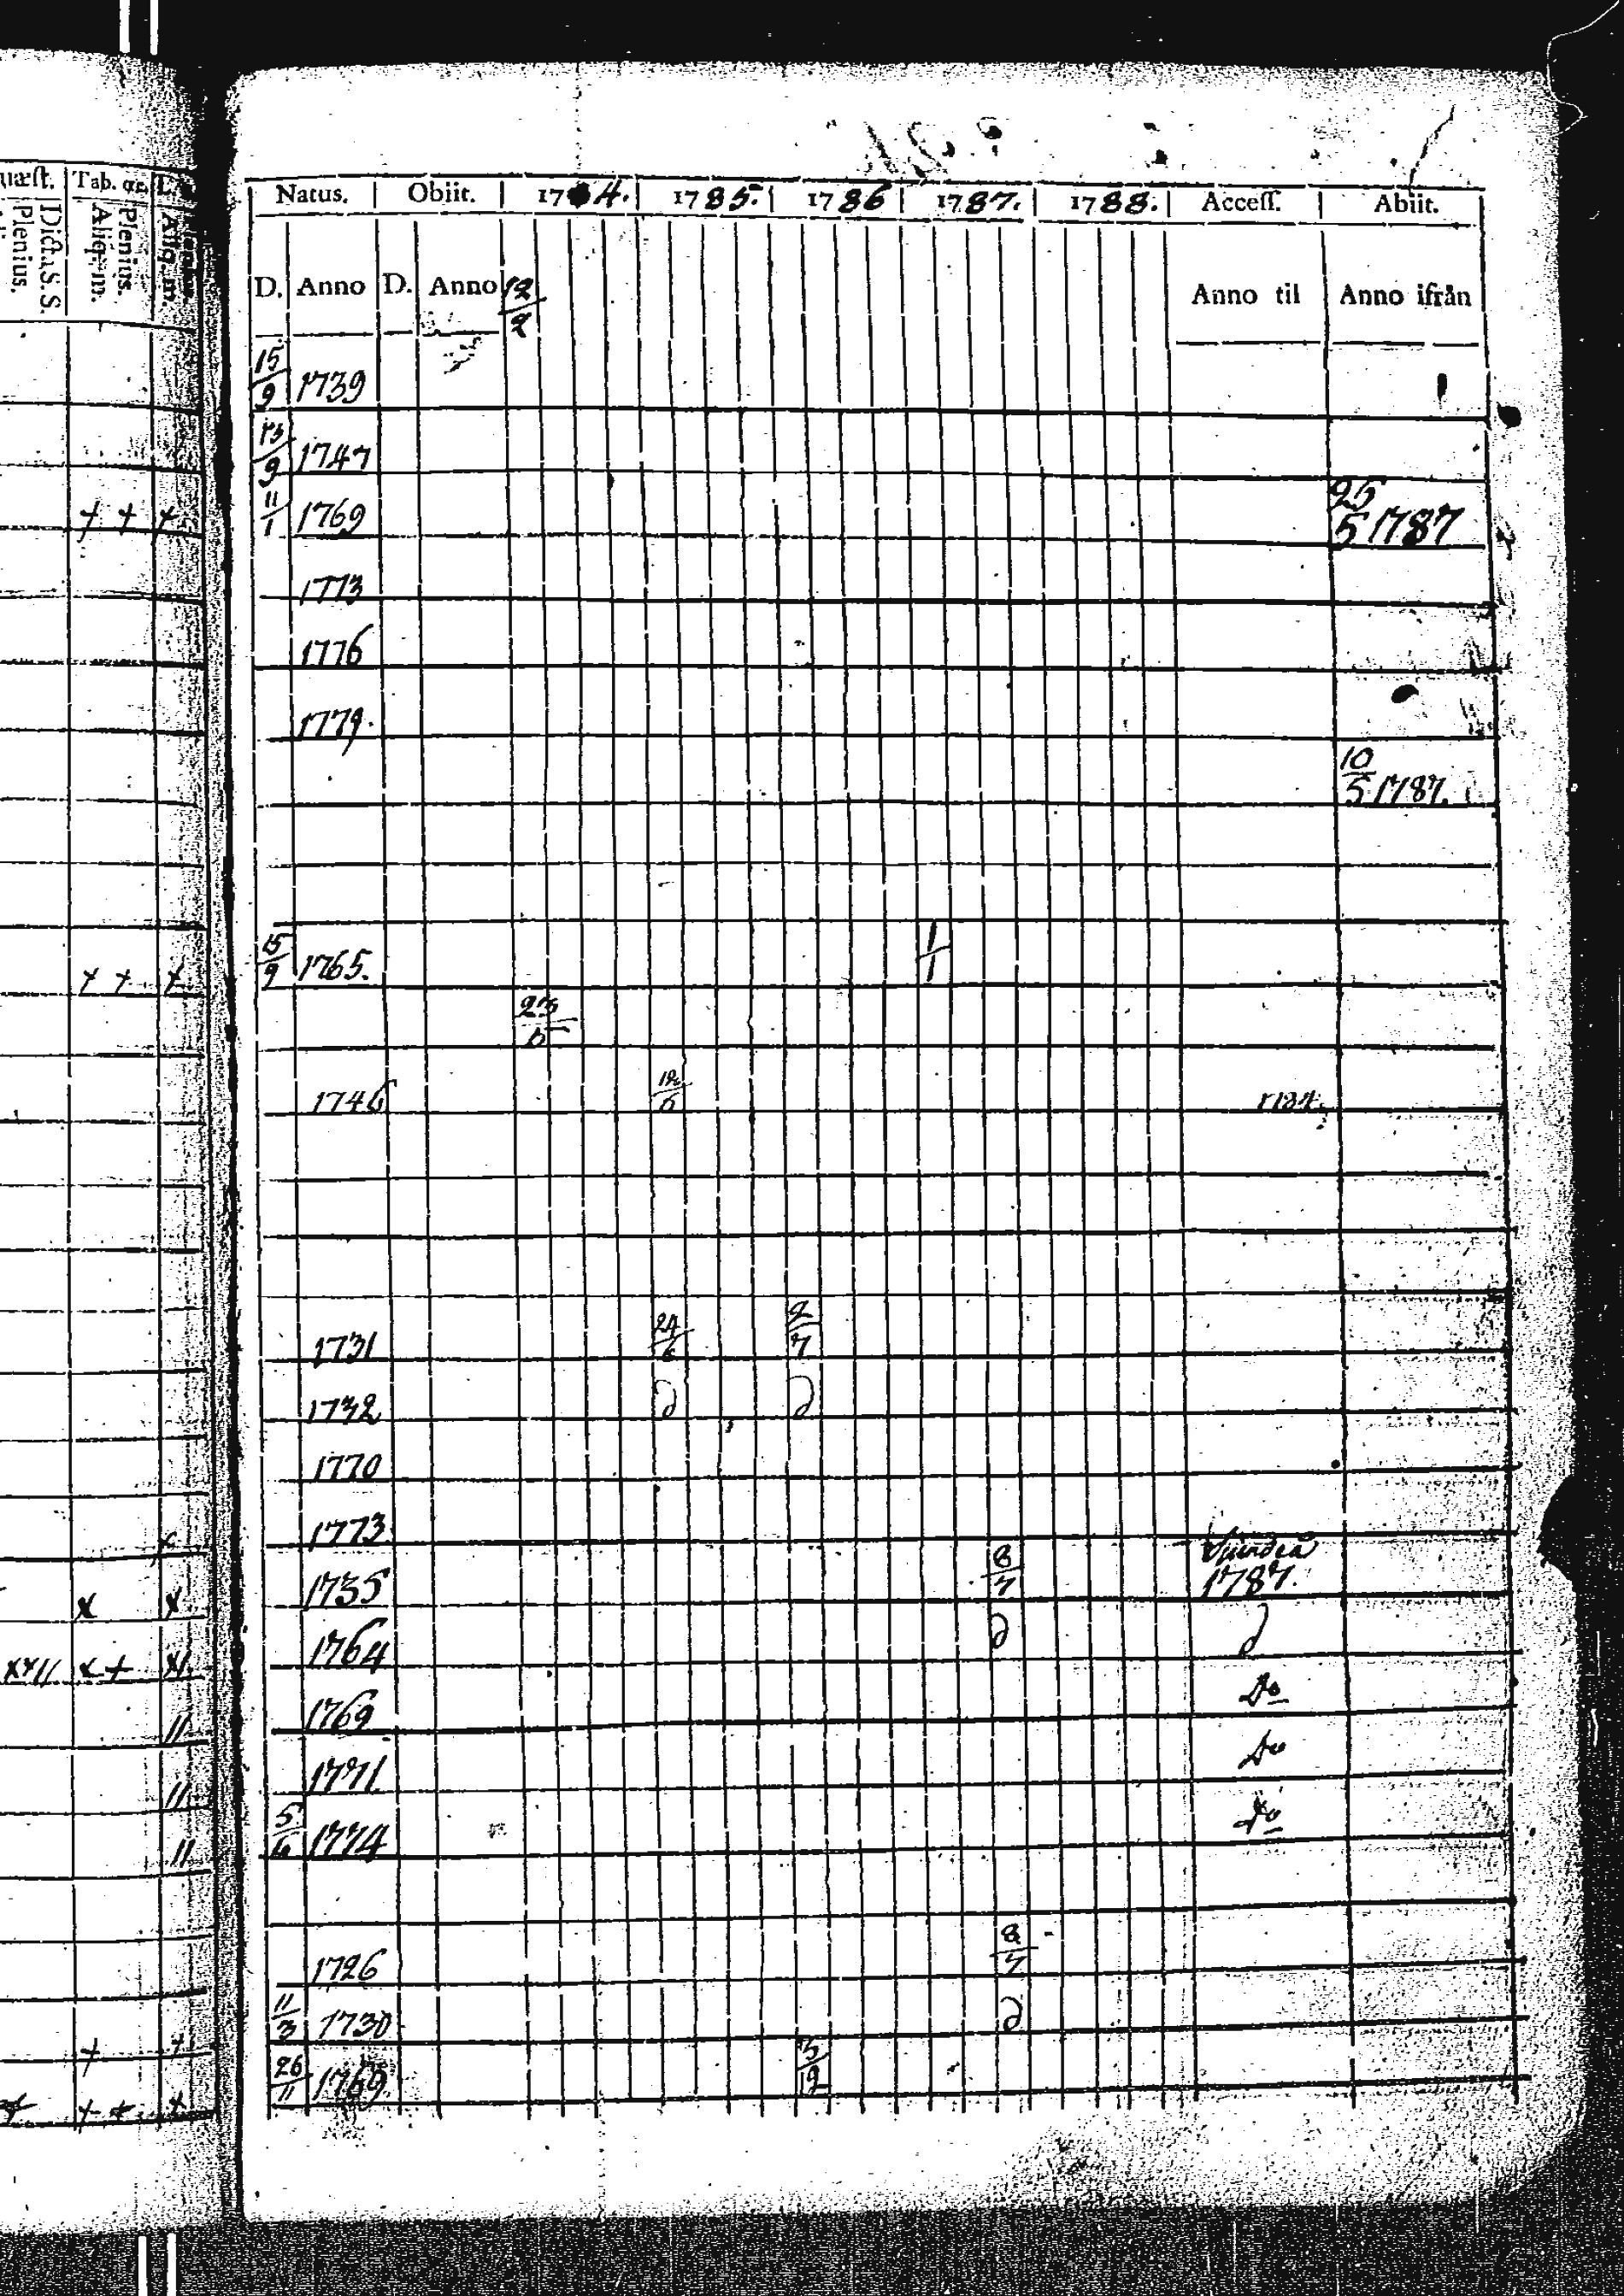 Tab. œc.
Dict. S. S.
Plenius.
Plenius.
Aliq. m.
Aliq. m.
Natus. Obiit. 1784. 1785. 1786 1787. 1788. Access. Abiit.
D. Anno D. Anno 12/2 Anno til Anno ifrån
15/9 1739
13/9 1747
+ + + 11/1 1769 25/5 1787
1773
1776
1779.
10/5 1787.
+ + + 15/9 1765. 1/1
23/5
1746 1784.
1731 24/6 2/7
1732 d d
1770
x 1773.
x x 1735 8/7 1787.
xx11 x+ x1. 1764 d d
11 1769 Do
11 1771 Do
11 5/6 1774 Do
1726 8/7
+ + 11/3 1730 d
+ + + + 26/11 1769 3/12